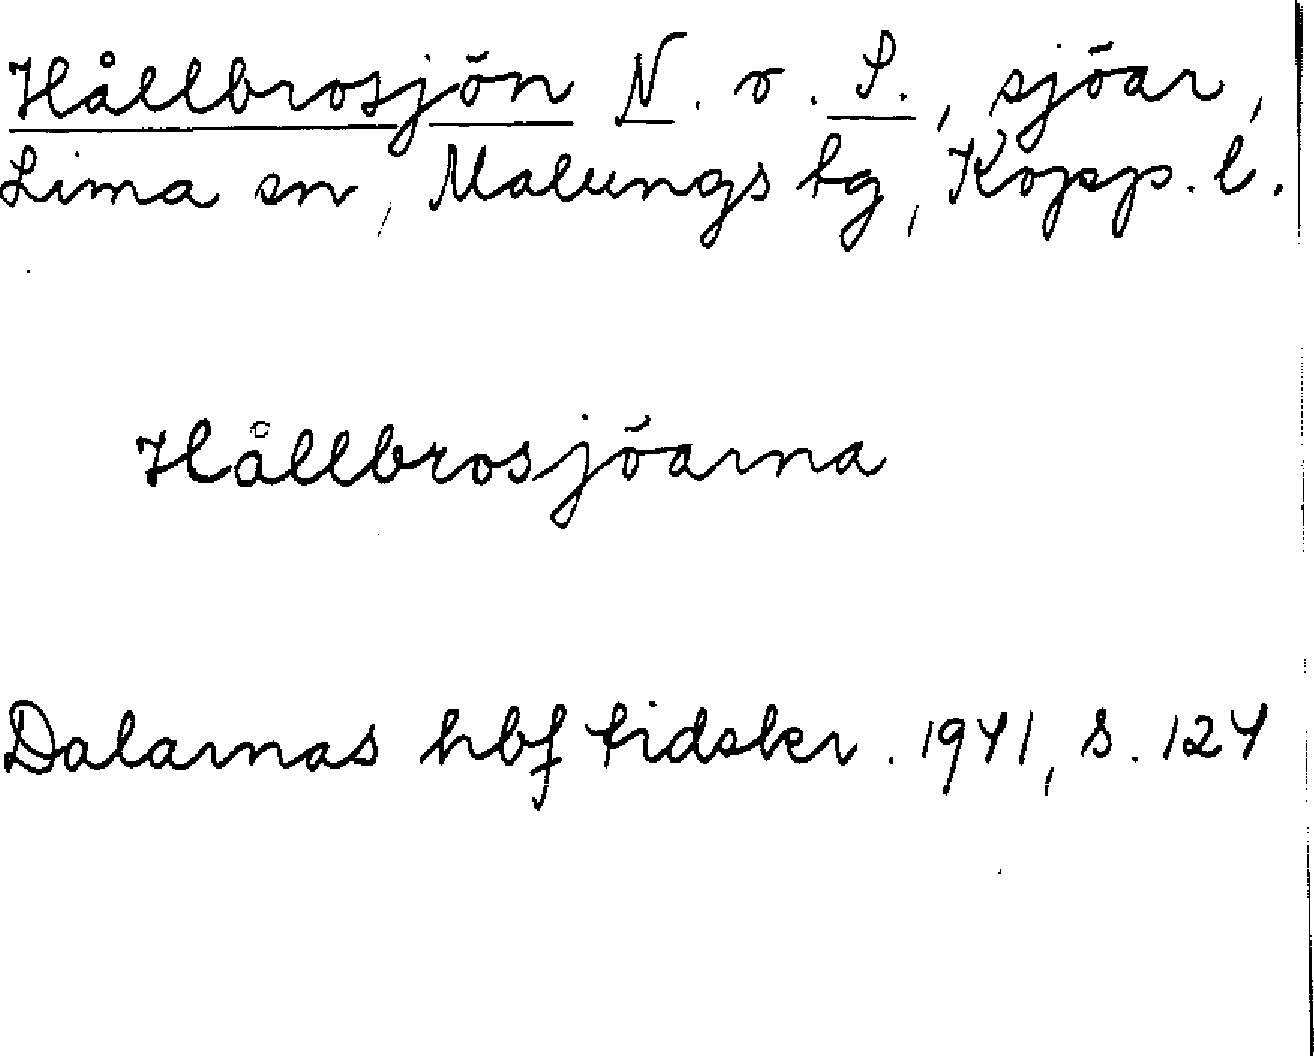 Hållbrosjön N. o. S., sjöar,
Lima sn, Malungs tg, Kopp. l.
Hållbrosjöarna
Dalarnas hbf tidskr. 1941, s. 124